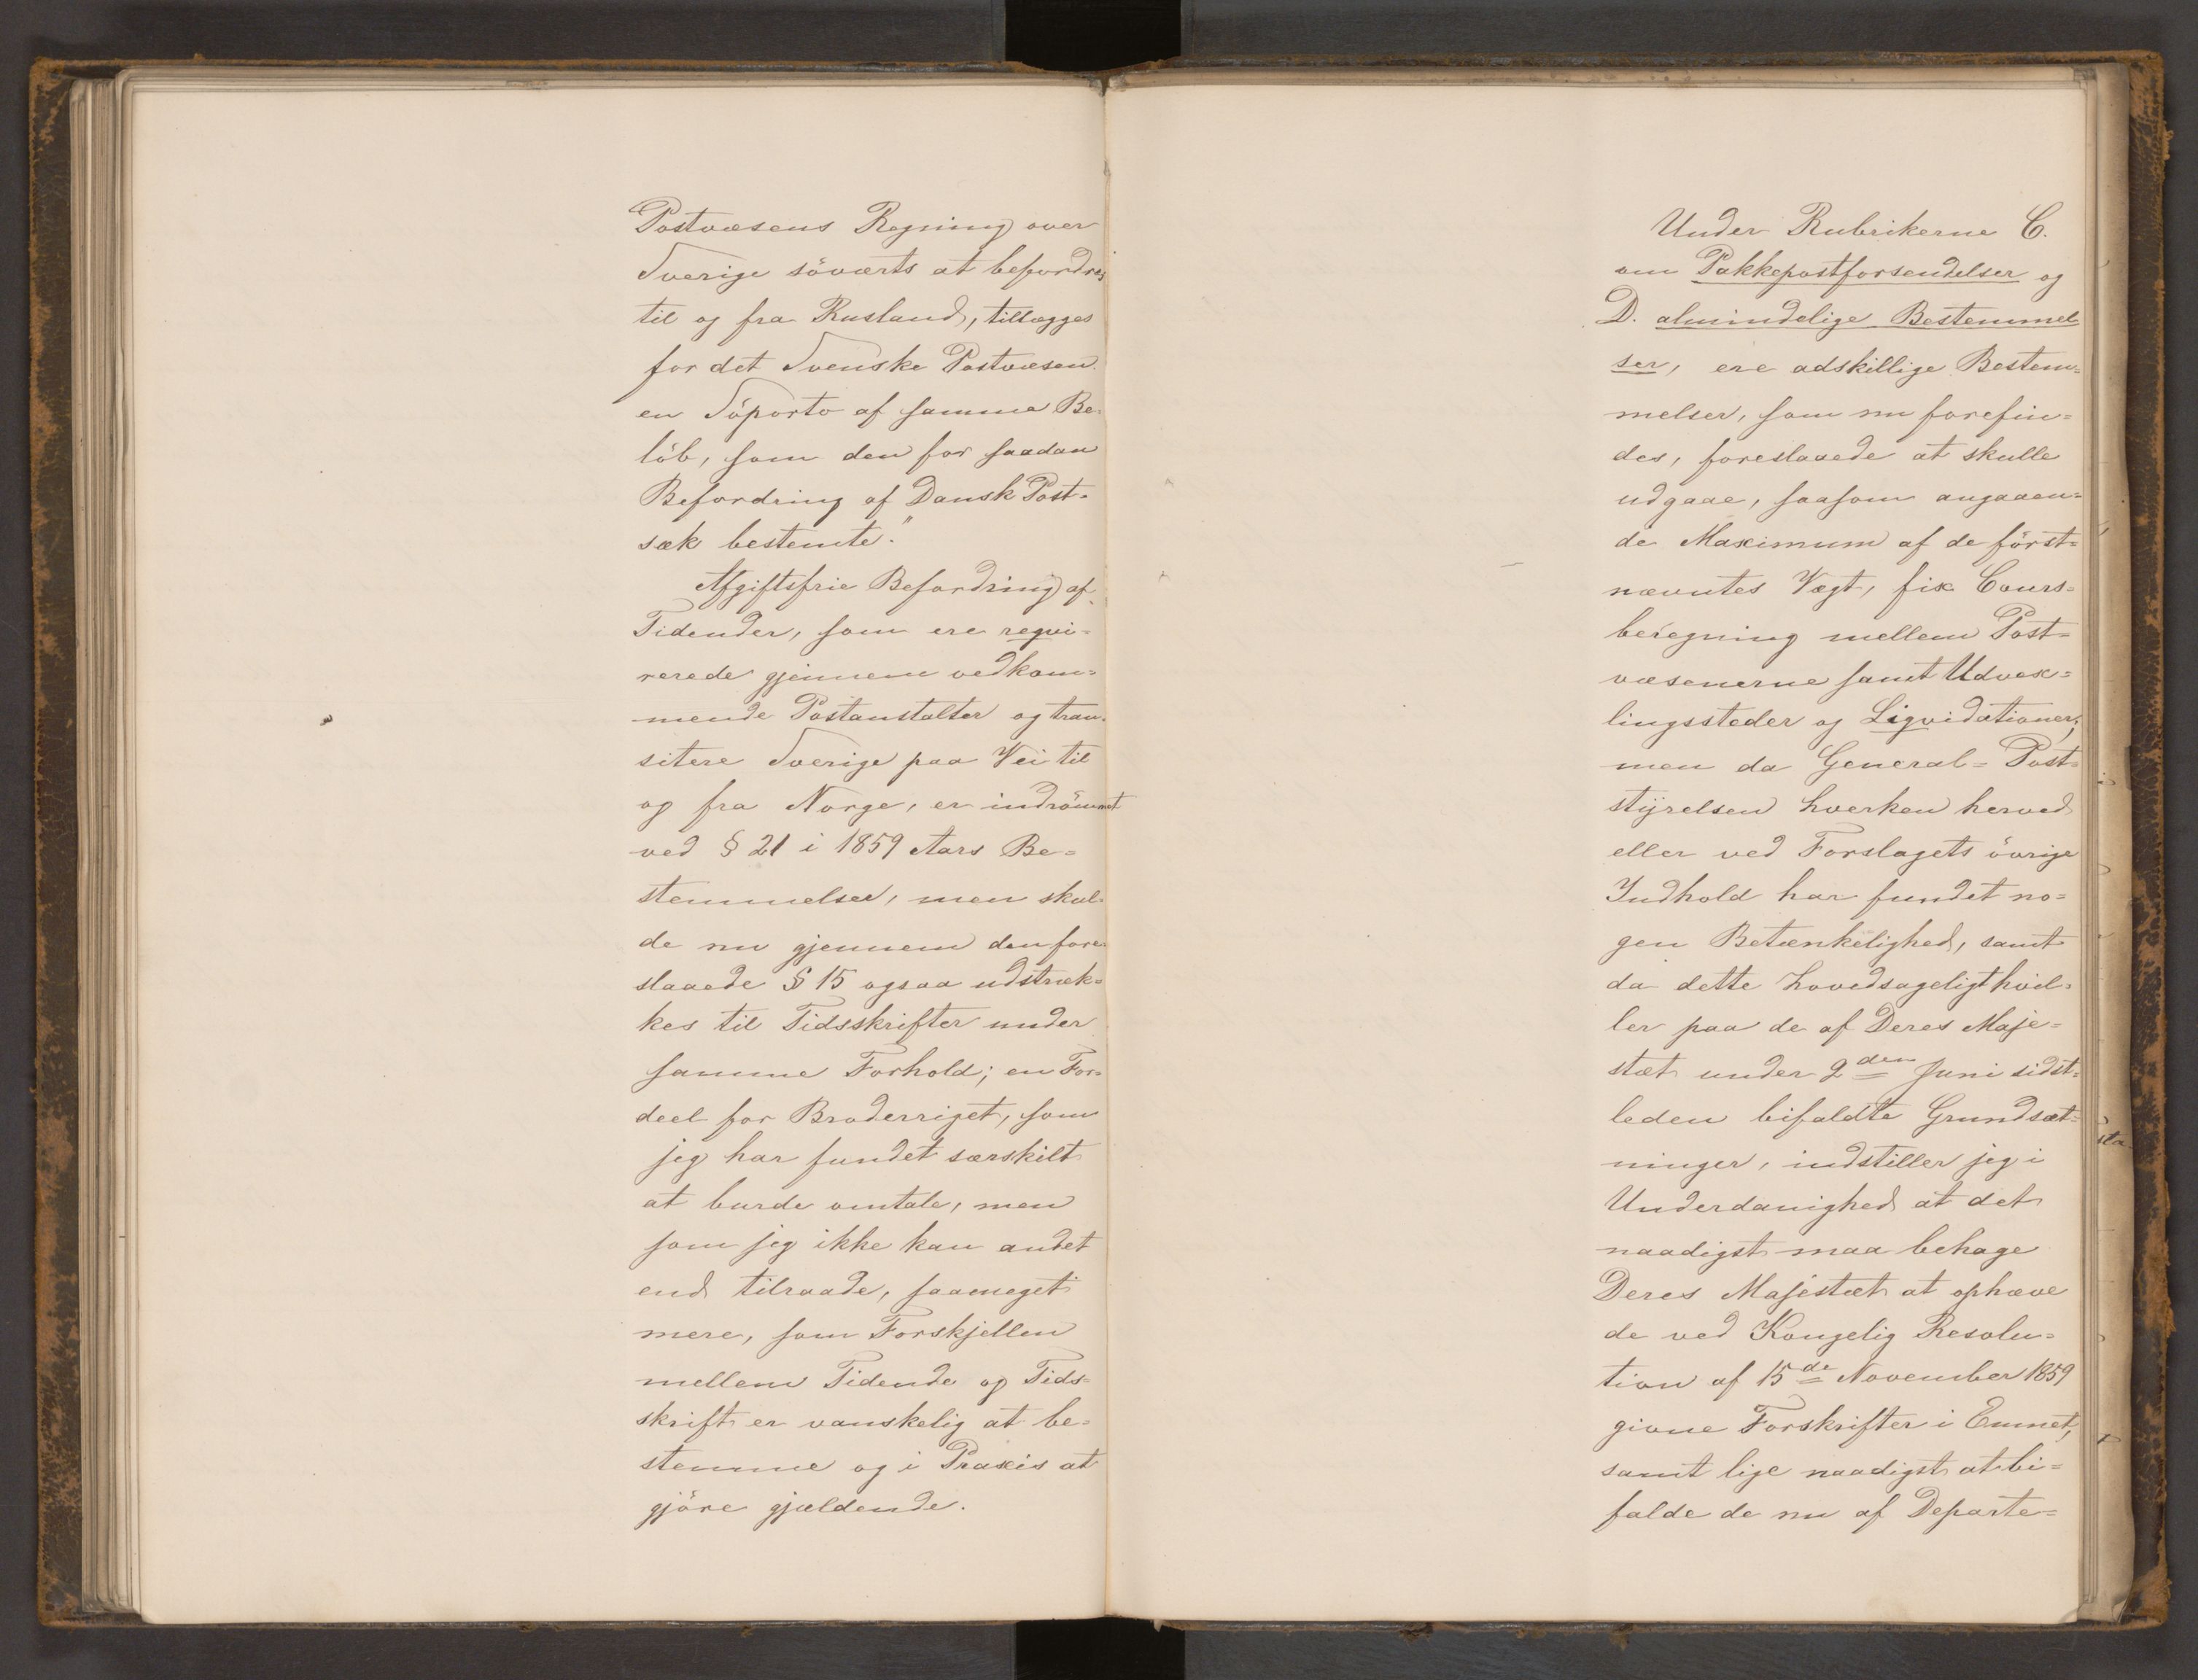 Postvæsens Regning over
Sverige söværts at befordres
til og fra Rusland, tillægges
for det Svenske Postvæsen
en Söporto af samme Be-
löb, som den for saadan
Befordring af Dansk Post-
sæk bestemte."
Afgiftsfrie Befordring af
Tidender, som ere reqvi-
rerede gjennem vedkom-
mende Postanstalter og tran-
sitere Sverige paa Vei til
og fra Norge, er indrömmet
ved § 21 i 1859 Aars Be-
stemmelser, men skul-
de nu gjennem den fore-
slaaede § 15 ogsaa udstræk-
kes til Tidsskrifter under
samme Forhold; en For-
deel for Broderriget, som
jeg har fundet særskilt
at burde omtale, men
som jeg ikke kan andet
end tilraade, saameget
mere, som Forskjellen
mellem Tidende og Tids-
skrift er vanskelig at be-
stemme og i Praxis at
gjöre gjældende.
Under Rubrikerne C.
om Pakkepostforsendelser og
D. almindelige Bestemmel
ser, ere adskillige Bestem-
melser, som nu forefin-
des, foreslaaede at skulle
udgaae, saasom angaaen-
de Maximum af de först-
nævntes Vægt, fix Cours-
beregning mellem Post-
væsenerne samt Udvex-
lingssteder og Liqvidationer;
men da General-Post-
styrelsen hverken herved
eller ved Forslagets övrige
Indhold har fundet no-
gen Betænkelighed, samt
da dette hovedsageligt hvil-
ler paa de af Deres Maje-
stæt under 2den Juni sidst-
leden bifaldte Grundsæt-
ninger, indstiller jeg i
Underdanighed at det
naadigst maa behage
Deres Majestæt at ophæve
de ved Kongelig Resolu-
tion af 15de November 1859
givne Forskrifter i Emnet,
samt lige naadigst at bi-
falde de nu af Departe-